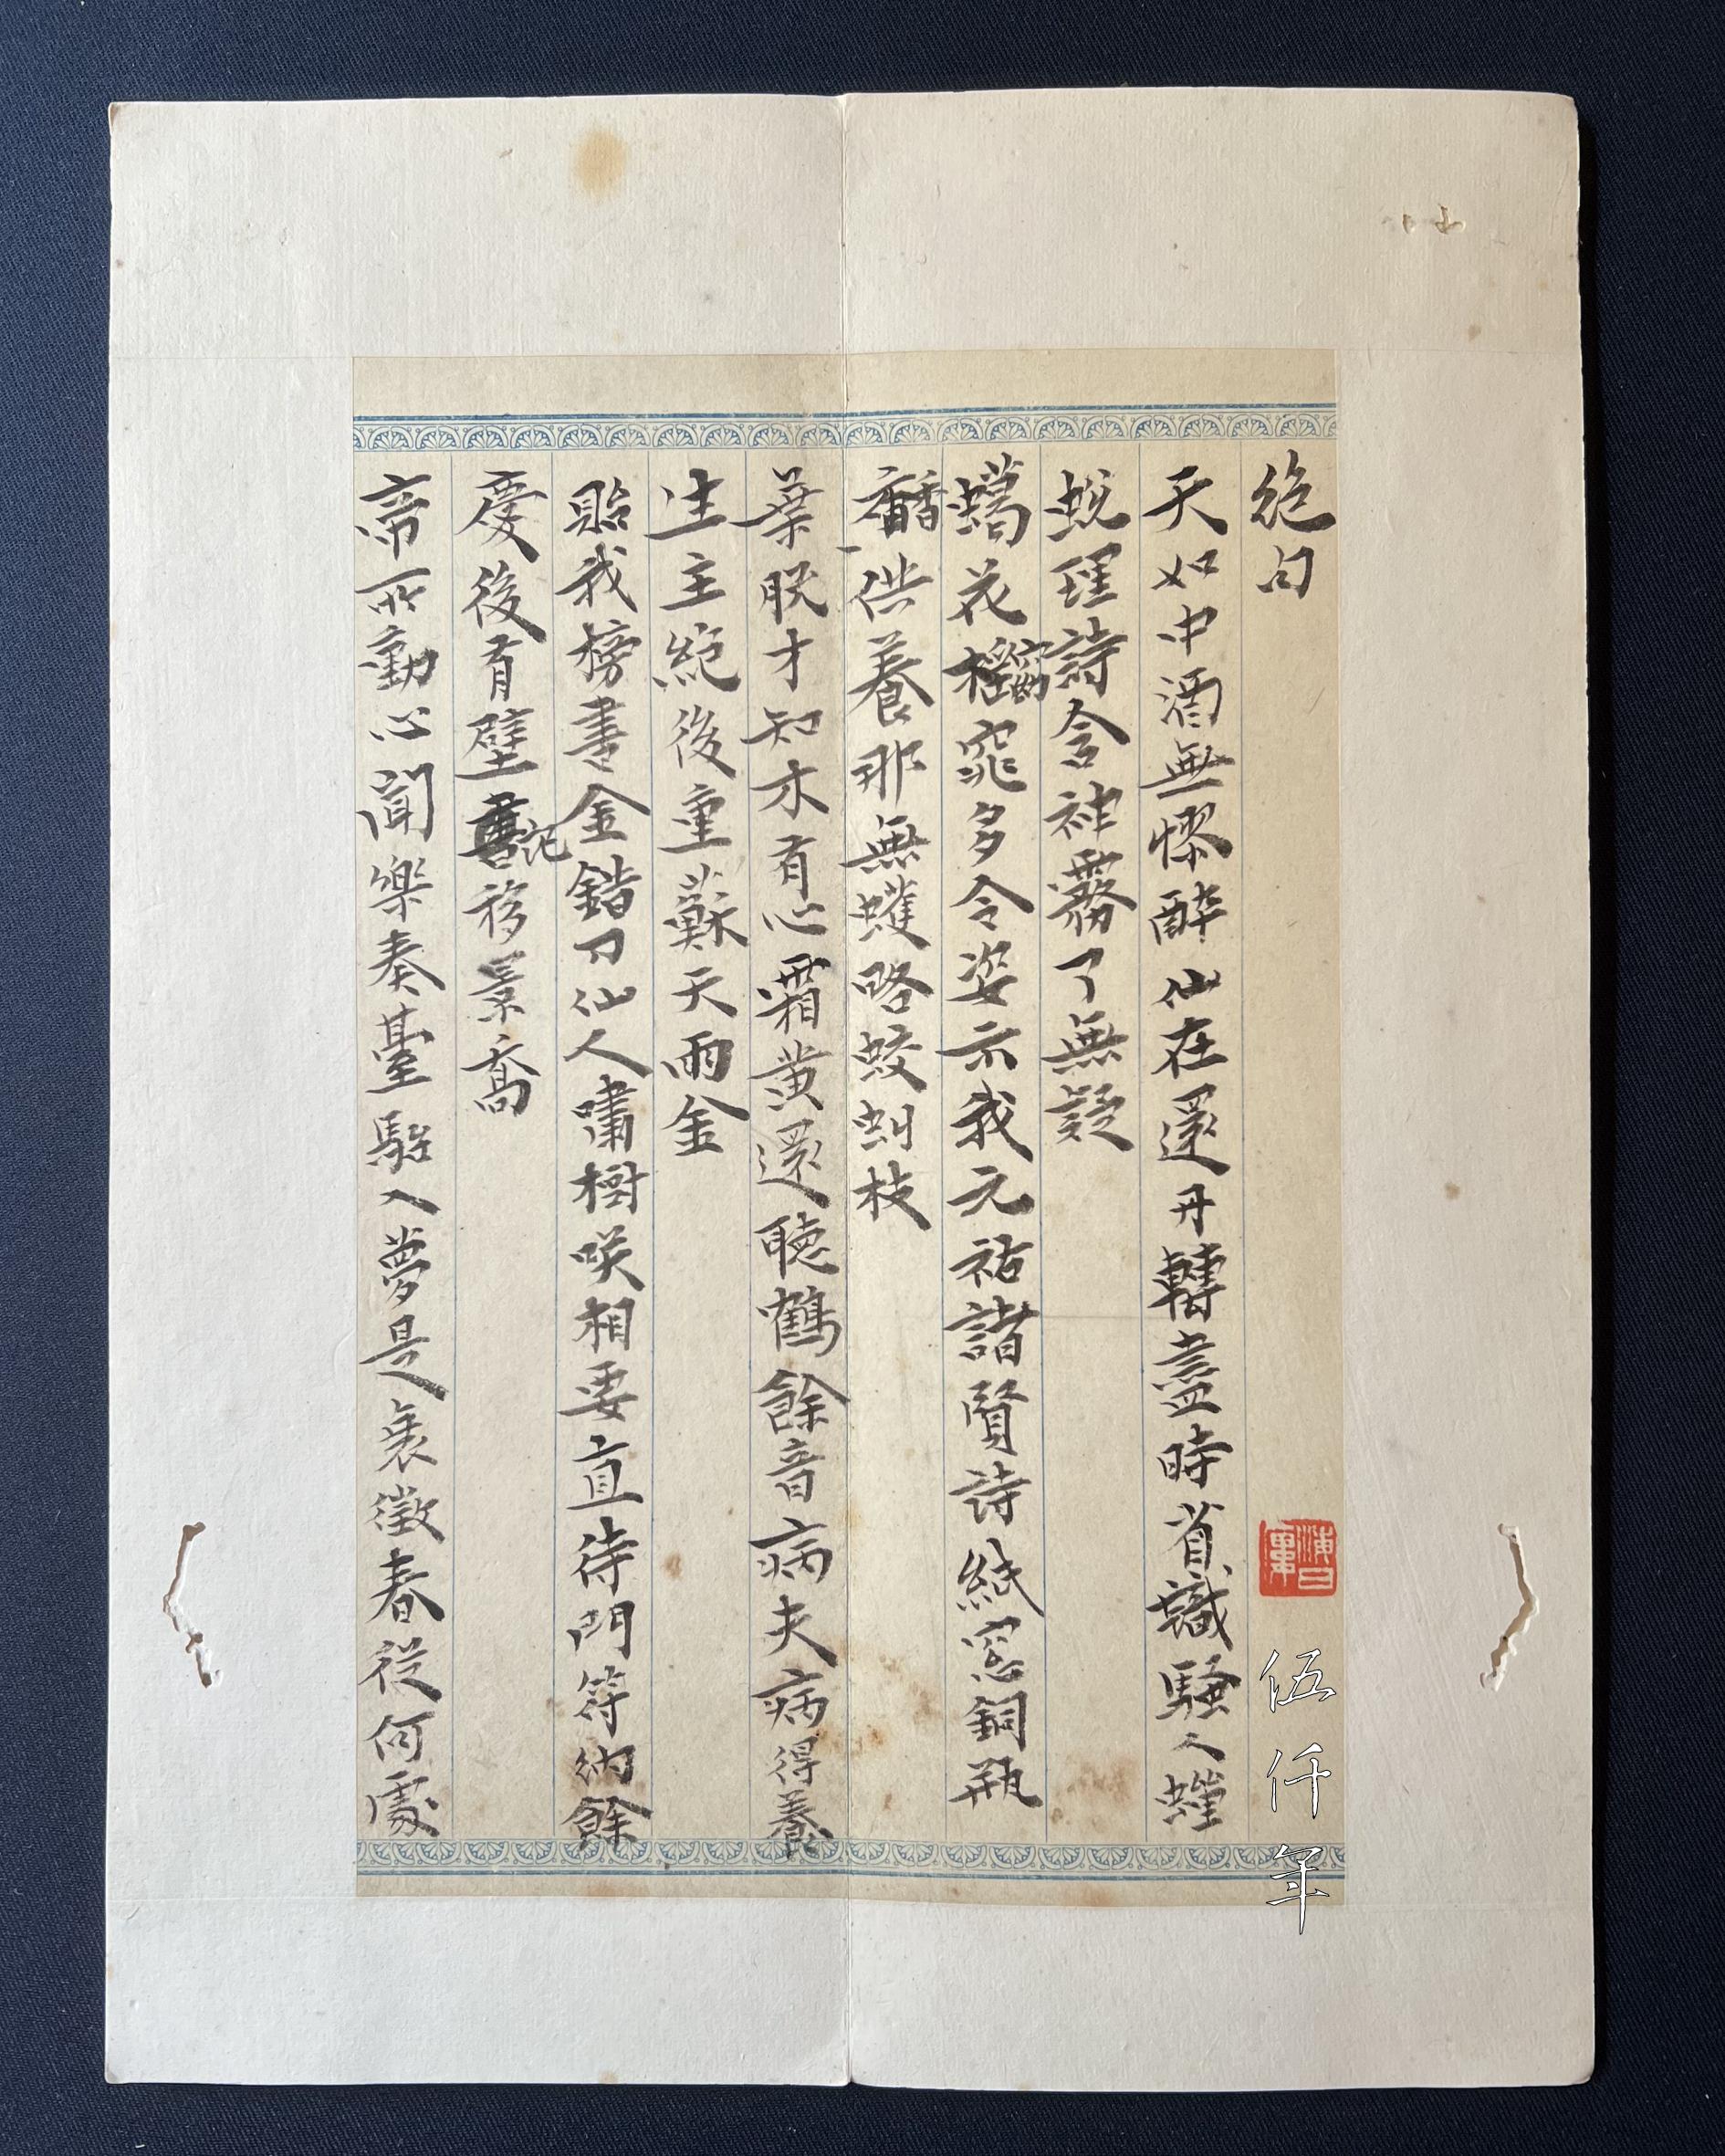 絶句
天如中酒無憀醉仙在還丹轉盡時省識騷人蠟
蛻理詩含神霧了無疑
蠟花穩窕多令姿示我元祐諸賢詩紙窓銅瓶
香供養那無蠖略蛟虯枝
葉脫才知木有心霜黄還聽鶴餘音病夫病得養
生主絶後重蘇天雨金
貽我榜書金錯刀仙人嘯樹咲相要直待門符納餘
慶後有壁記移景喬
帝所動心聞樂奏臺駘入夢是衰徵春從何處
伍仟年